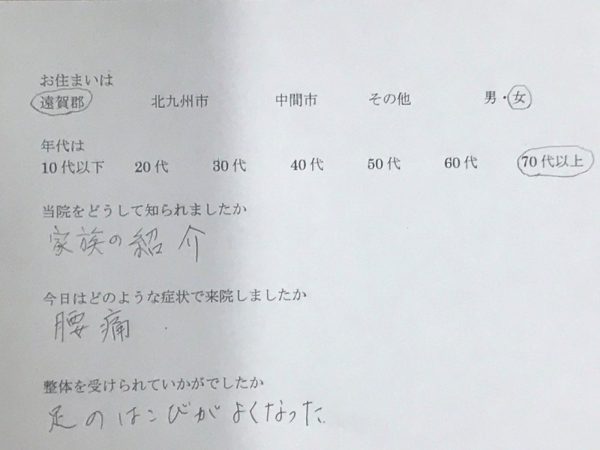 お住まいは
遠賀郡 北九州市 中間市 その他 男・女
年代は
10代以下 20代 30代 40代 50代 60代 70代以上
当院をどうして知られましたか
家族の紹介
今日はどのような症状で来院しましたか
腰痛
整体を受けられていかがでしたか
足のはこびがよくなった